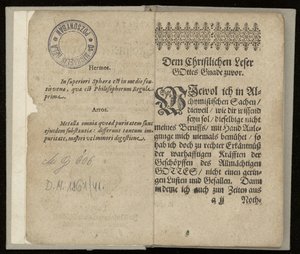 Hermes.
In superiori Sphæra est in medio
quæ est Philosophorum Regula
prima.
Arros.
Metalla omnia quoad puritatem sunt
ejusdem substantiæ: differunt tantum im-
puritate, majori vel minori digestione.
D. M. 1861/41.
Dem Christlichen Leser
GOttes Gnade zuvor.
WIewol ich in Al-
chymistischen Sachen/
dieweil/ wie dir wissend
seyn sol/ dieselbige nicht
meines Beruffs/ mit Hand-Anle-
gunge mich niemals bemühet/ so
hab ich doch zu rechter Erkäntnüß
der warhafftigen Kräfften der
Geschöpffen des Allmächtigen
GOTTES/ nicht einen gerin-
gen Lusten und Gefallen. Dann
in deme ich auch zun Zeiten aus
Noth-